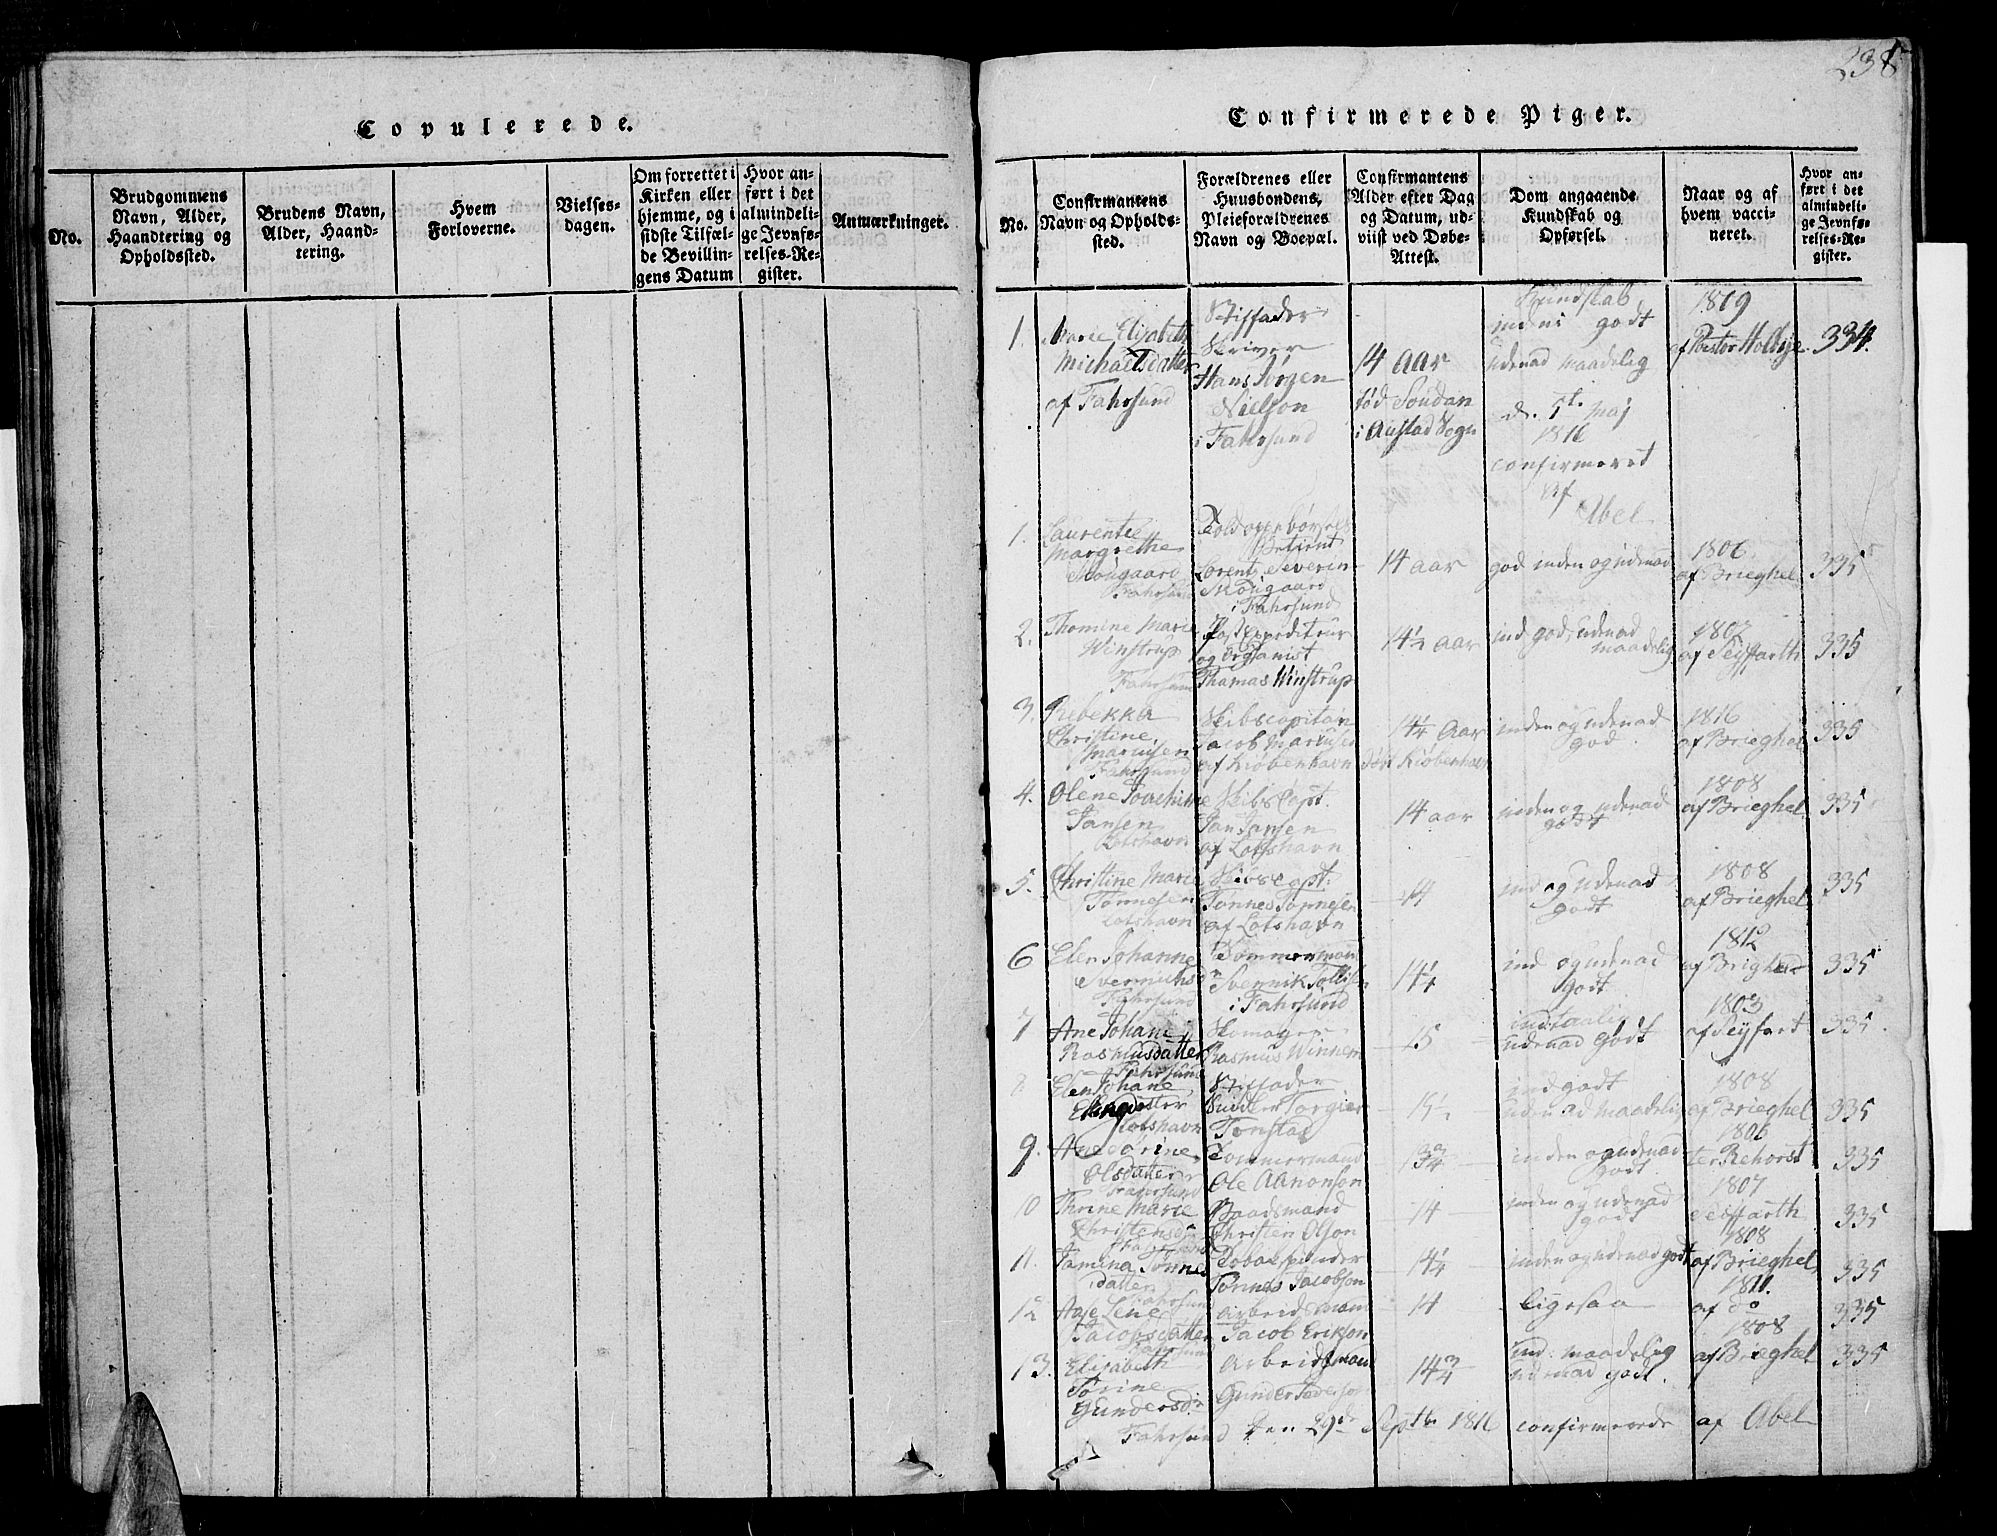 238
Copulerede.
No.
Brudgommens
Navn, Alder,
Haandtering og
Opholdssted.
Brudens Navn,
Alder, Haand-
tering.
Hvem
Forloverne.
Vielses-
dagen.
Om forrettet i
Kirken eller
hjemme, og i
sidste Tilfæl-
de Bevillin-
gens Datum
Hvor an-
ført i det
almindeli-
ge Jevnfø-
relses-Re-
gister.
Anmærkninger.
Confirmerede Piger.
No.
Confirmantens
Navn og Opholds-
sted.
Forældrenes eller
Huusbondens,
Pleieforældrenes
Navn og Boepæl.
Confirmantens
Alder efter Dag
og Datum, ud-
viist ved Døbe-
Attest.
Dom angaaende
Kundskab og
Opførsel.
Naar og af
hvem vacci-
neret.
Hvor an-
ført i det
almindeli-
ge Jevnfø-
relses-Re-
gister.
1.
Marie Elisabeth
Michaelsdatter
af Fahrsund
Stiffader
Skriver
Hans Jørgen
Nielson
i Fahrsund
14 Aar
fød Soudan
i Austad Sogn
Kundskab
indeni godt
udenad maadelig
d. 5t. Maj
1816
confirmeret
af
Abel
1809
af Pastor Holbye
334.
1.
Laurentze
Margrethe
Mougaard
Fahrsund
Betient
Lorentz Severin
Mougaard
i Fahrsund
14 aar
god inden og udenad
1806
af Brieghel
335
2.
Thomine Marie
Winstrup
Fahrsund
Postexpediteur
og Organist
Thomas Winstrup
14½ Aar
ind god, udenad
maadelig
1802
af Seyffarth
335
3.
Rebekka
Christine
Mariusen
Fahrsund
Skibscapitain
Jacob Mariusen
af Kiøbenhavn
14¼ Aar
født Kiøbenhavn
inden og udenad
god
1816
af Brieghel
335
4.
Olene Joachime
Jansen
Lotshavn
Skibs Capt.
Jan Jansen
af Lotshavn
14 aar
inden og udenad
godt
1808
af Brieghel
335
5.
Christine Marie
Tønnesen
Lotshavn
Skibscapt:
Tønnes Tønnesen
af Lotshavn
14
ind og udenad
godt
1808
af Brieghel
335
6
Elen Johanne
Fahrsund
Tømmermand
Svennik Tollisen
i Fahrsund
14¼
ind og udenad
godt
1812
af Brighel
335
7
Ane Johane
Rasmusdatter
Fahrsund
Skomager
Rasmus Winnem
15
ind taalig
udenad godt
1803
af Seyfart
335.
8.
Elen Johane
Lotshavn
Stiffader
Torgier
Tonstad
15½
ind godt
udenad maadelig
1808
af Brieghel
335
9.
Ane Sørine
Olsdatter
Fahrsund
Tømmermand
Ole Aanonson
13¾
inden og udenad
godt
1806
Rehorst
335
10
Thrine Marie
Christensd
Baadsmand
Christen Olson
14
inden og udenad
godt
1807
Seiffarth
335
11.
Jamina Tønnes
datter
Fahrsund
Tobakspinder
Tønnes Jacobson
14¼
inden og udenad godt
1808
af Brieghel
335
12
Aase Lene
Jacobsdatter
Fahrsund
Arbeidsman
Jacob Erikson
14
ligesaa
1811.
af do
335
13.
Elisabeth
Tørine
Gundersd:
Fahrsund
Arbeidsman
Gunder Pederson
14¾
ind: maadelig
udenad godt.
1808
af Brieghel
335
den 29de Septbr 1816 confirmerede af Abel